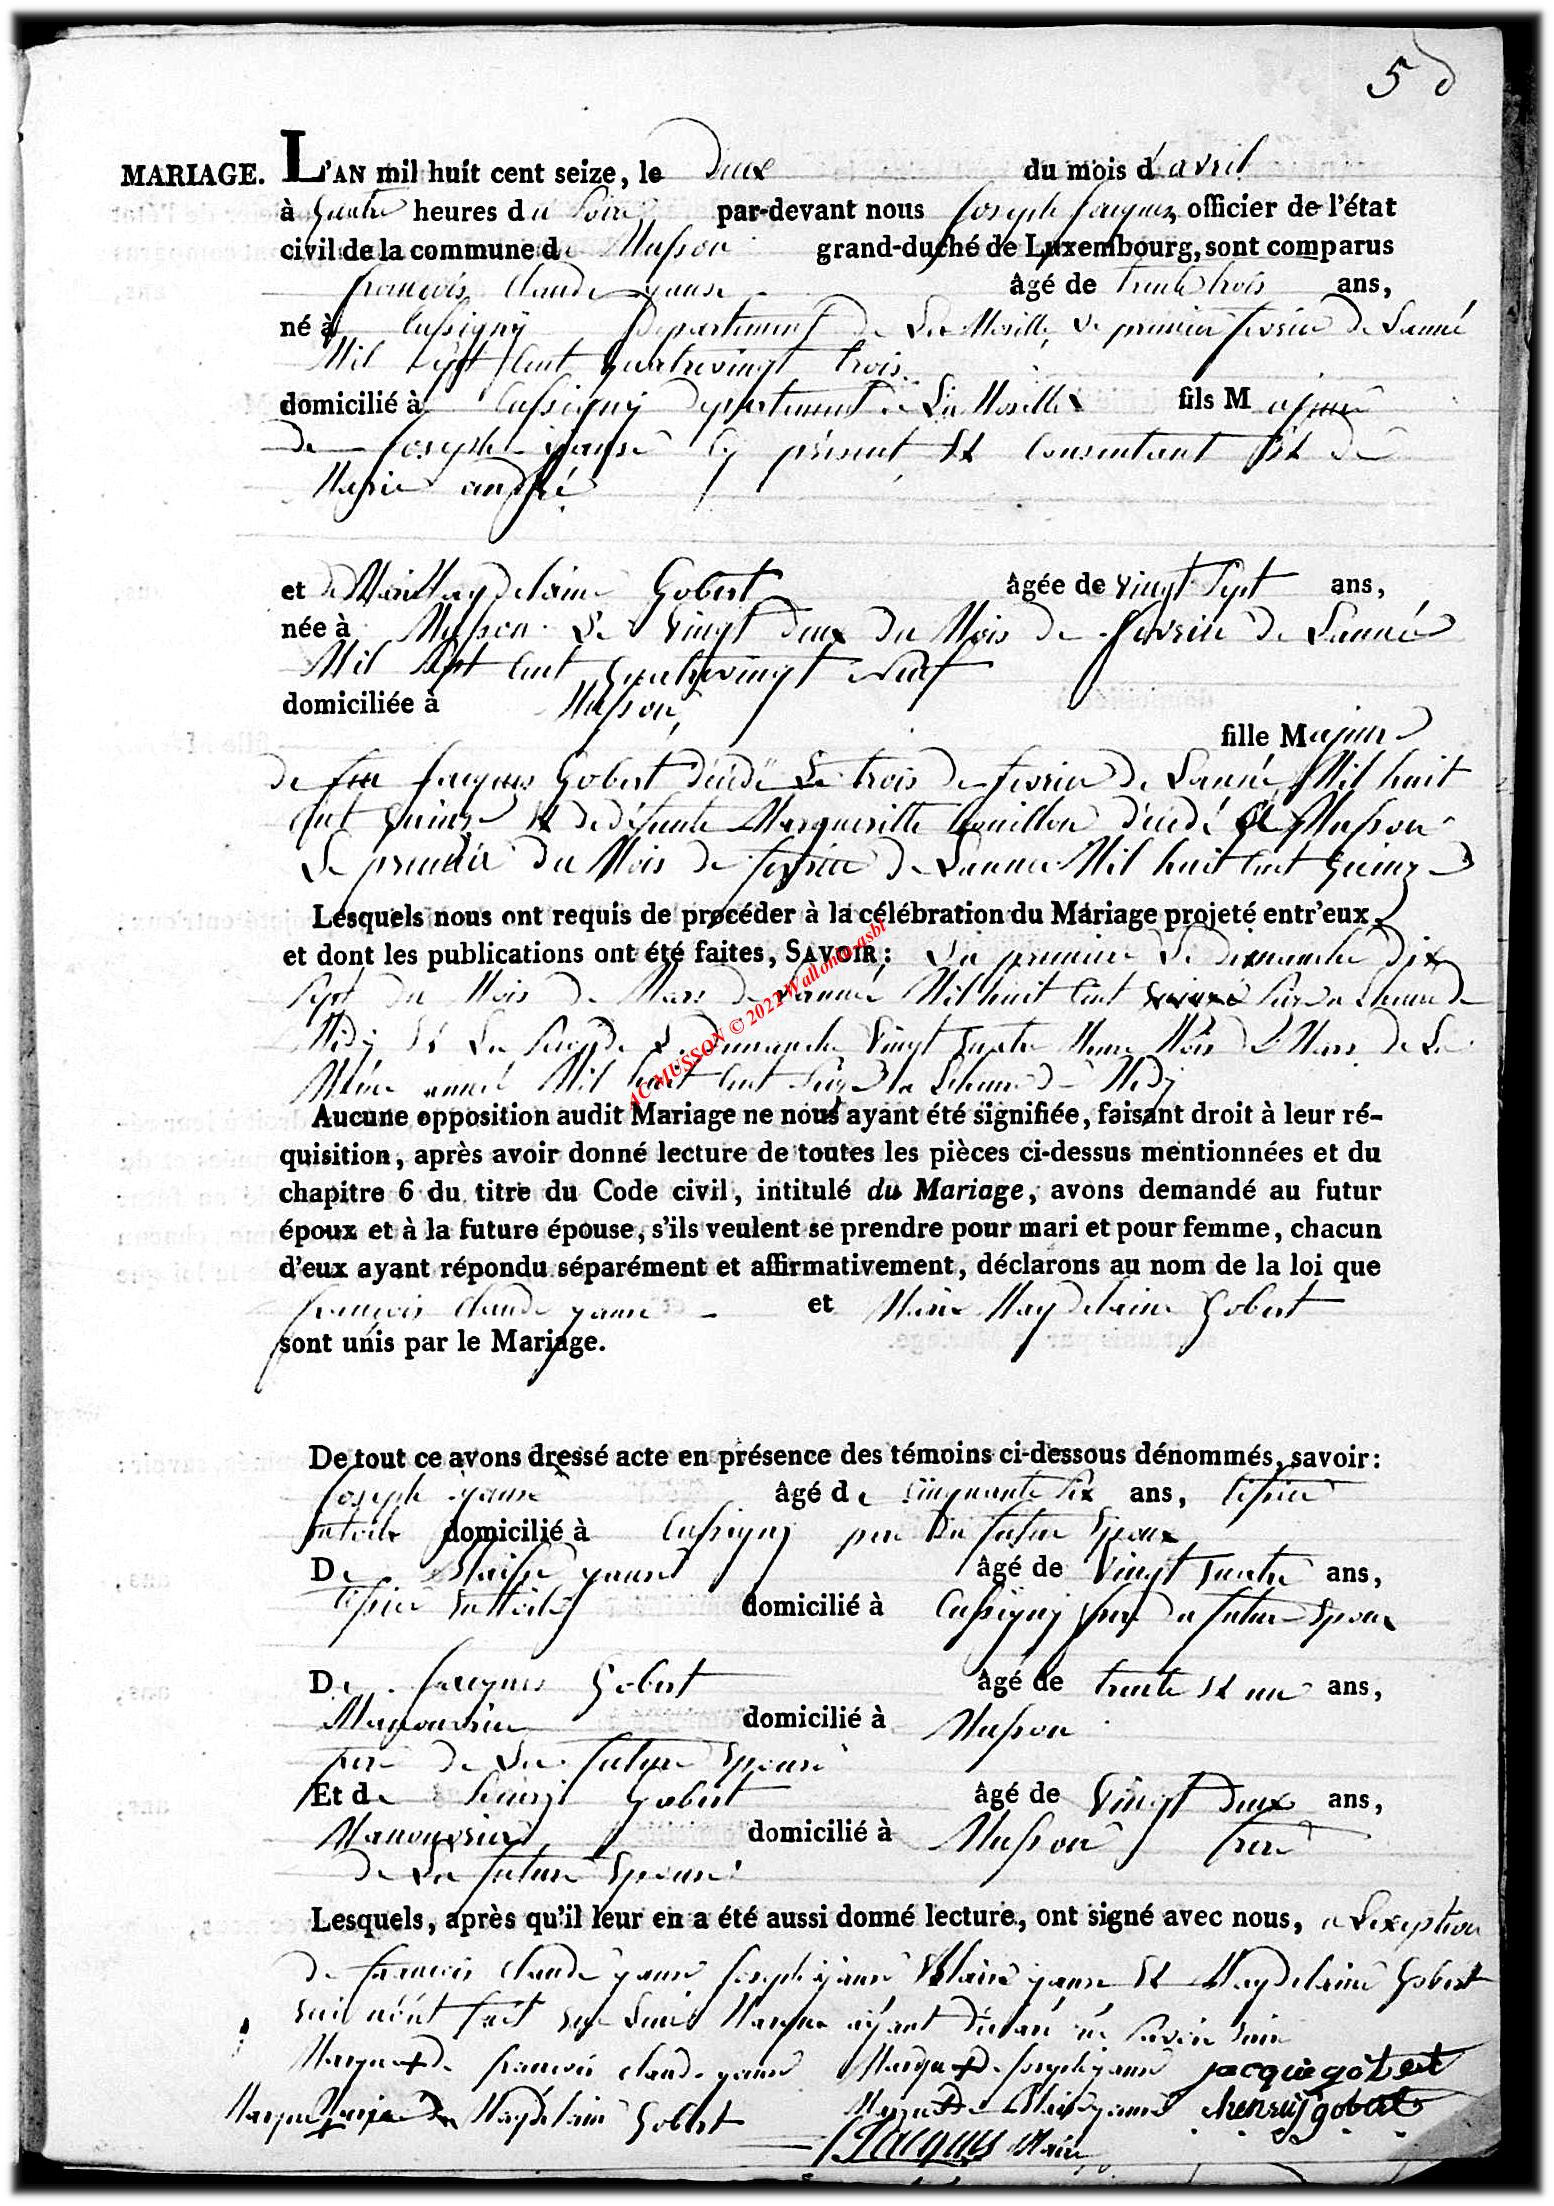 5
MARIAGE. L'AN mil huit cent seize, le Deux du mois d'avril
à quatre heures du Soire par-devant nous Joseph Jacques officier de l'état
civil de la commune de Musson grand-duché de Luxembourg, sont comparus
françois Claude yanse âgé de trente trois ans,
né à Cussigny Departement de La Moselle, Le premier fevrier de Lanné
Mil Sept Cent quatrevingt trois
domicilié à Cussigny departement de La Moselle fils Majeure
de Joseph yanse Cy présent Et Consentant Et de
Marie andré
et de Marie Magdelaine Gobert âgée de vingt Sept ans,
née à Musson Le Vingt deux du Mois de fevrier de Lanneé
Mil Sept Cent quatrevingt Neuf
domiciliée à Musson,
fille Majeure
de feu Jacques Gobert décédé Le trois de fevrier de Lanné Mil huit
Cent quinze Et de défunte Margueritte bouillon décédé à Musson
Le premier du Mois de fevrier de Lannee Mil huit Cent quinze
Lesquels nous ont requis de procéder à la célébration du Mariage projeté entr'eux
et dont les publications ont été faites, SAVOIR: La premiere Le dimanche dix
Sept du Mois de Mars de Lanneé Mil huit Cent Seize a Lheure de
Midy Et La Seconde Le dimanche Vingt quatre Meme Mois de Mars de La
Même anneé Mil huit Cent Seize a Lheure de Midy
AC MUSSON © 2022 Wallonia-asbl
Aucune opposition audit Mariage ne nous ayant été signifiée, faisant droit à leur ré-
quisition, après avoir donné lecture de toutes les pièces ci-dessus mentionnées et du
chapitre 6 du titre du Code civil, intitulé du Mariage, avons demandé au futur
époux et à la future épouse, s'ils veulent se prendre pour mari et pour femme, chacun
d'eux ayant répondu séparément et affirmativement, déclarons au nom de la loi que
françois Claude yanse et Marie Magdelaine Gobert
sont unis par le Mariage.
De tout ce avons dressé acte en présence des témoins ci-dessous dénommés, savoir:
Joseph yanse âgé de Cinquante Six ans, tisier
domicilié à Cussigny per du futur Epoux
De Blaise yanse âgé de Vingt quatre ans,
tisier domicilié à Cussigny frer du futur Epoux
De Jacques Gobert âgé de trente Et un ans,
Manouvrier domicilié à Musson
frere de La future Epouse
Et de henry Gobert âgé de Vingt Deux ans,
Manouvrier domicilié à Musson frere
de La future Epouse
Lesquels, après qu'il leur en a été aussi donné lecture, ont signé avec nous, a Lexeption
de françois Claude yanse Joseph yanse Blaise yanse Et Magdelaine Gobert
qui n'ont fait que Leurs Marque ayant déclaré ne Savoir
Marque + de françois Claude yanse Marque + de Joseph yanse jacque gobert
Marque + de Magdelaine Gobert Marque + de Blaise yanse henry gobert
J Jacques Maire